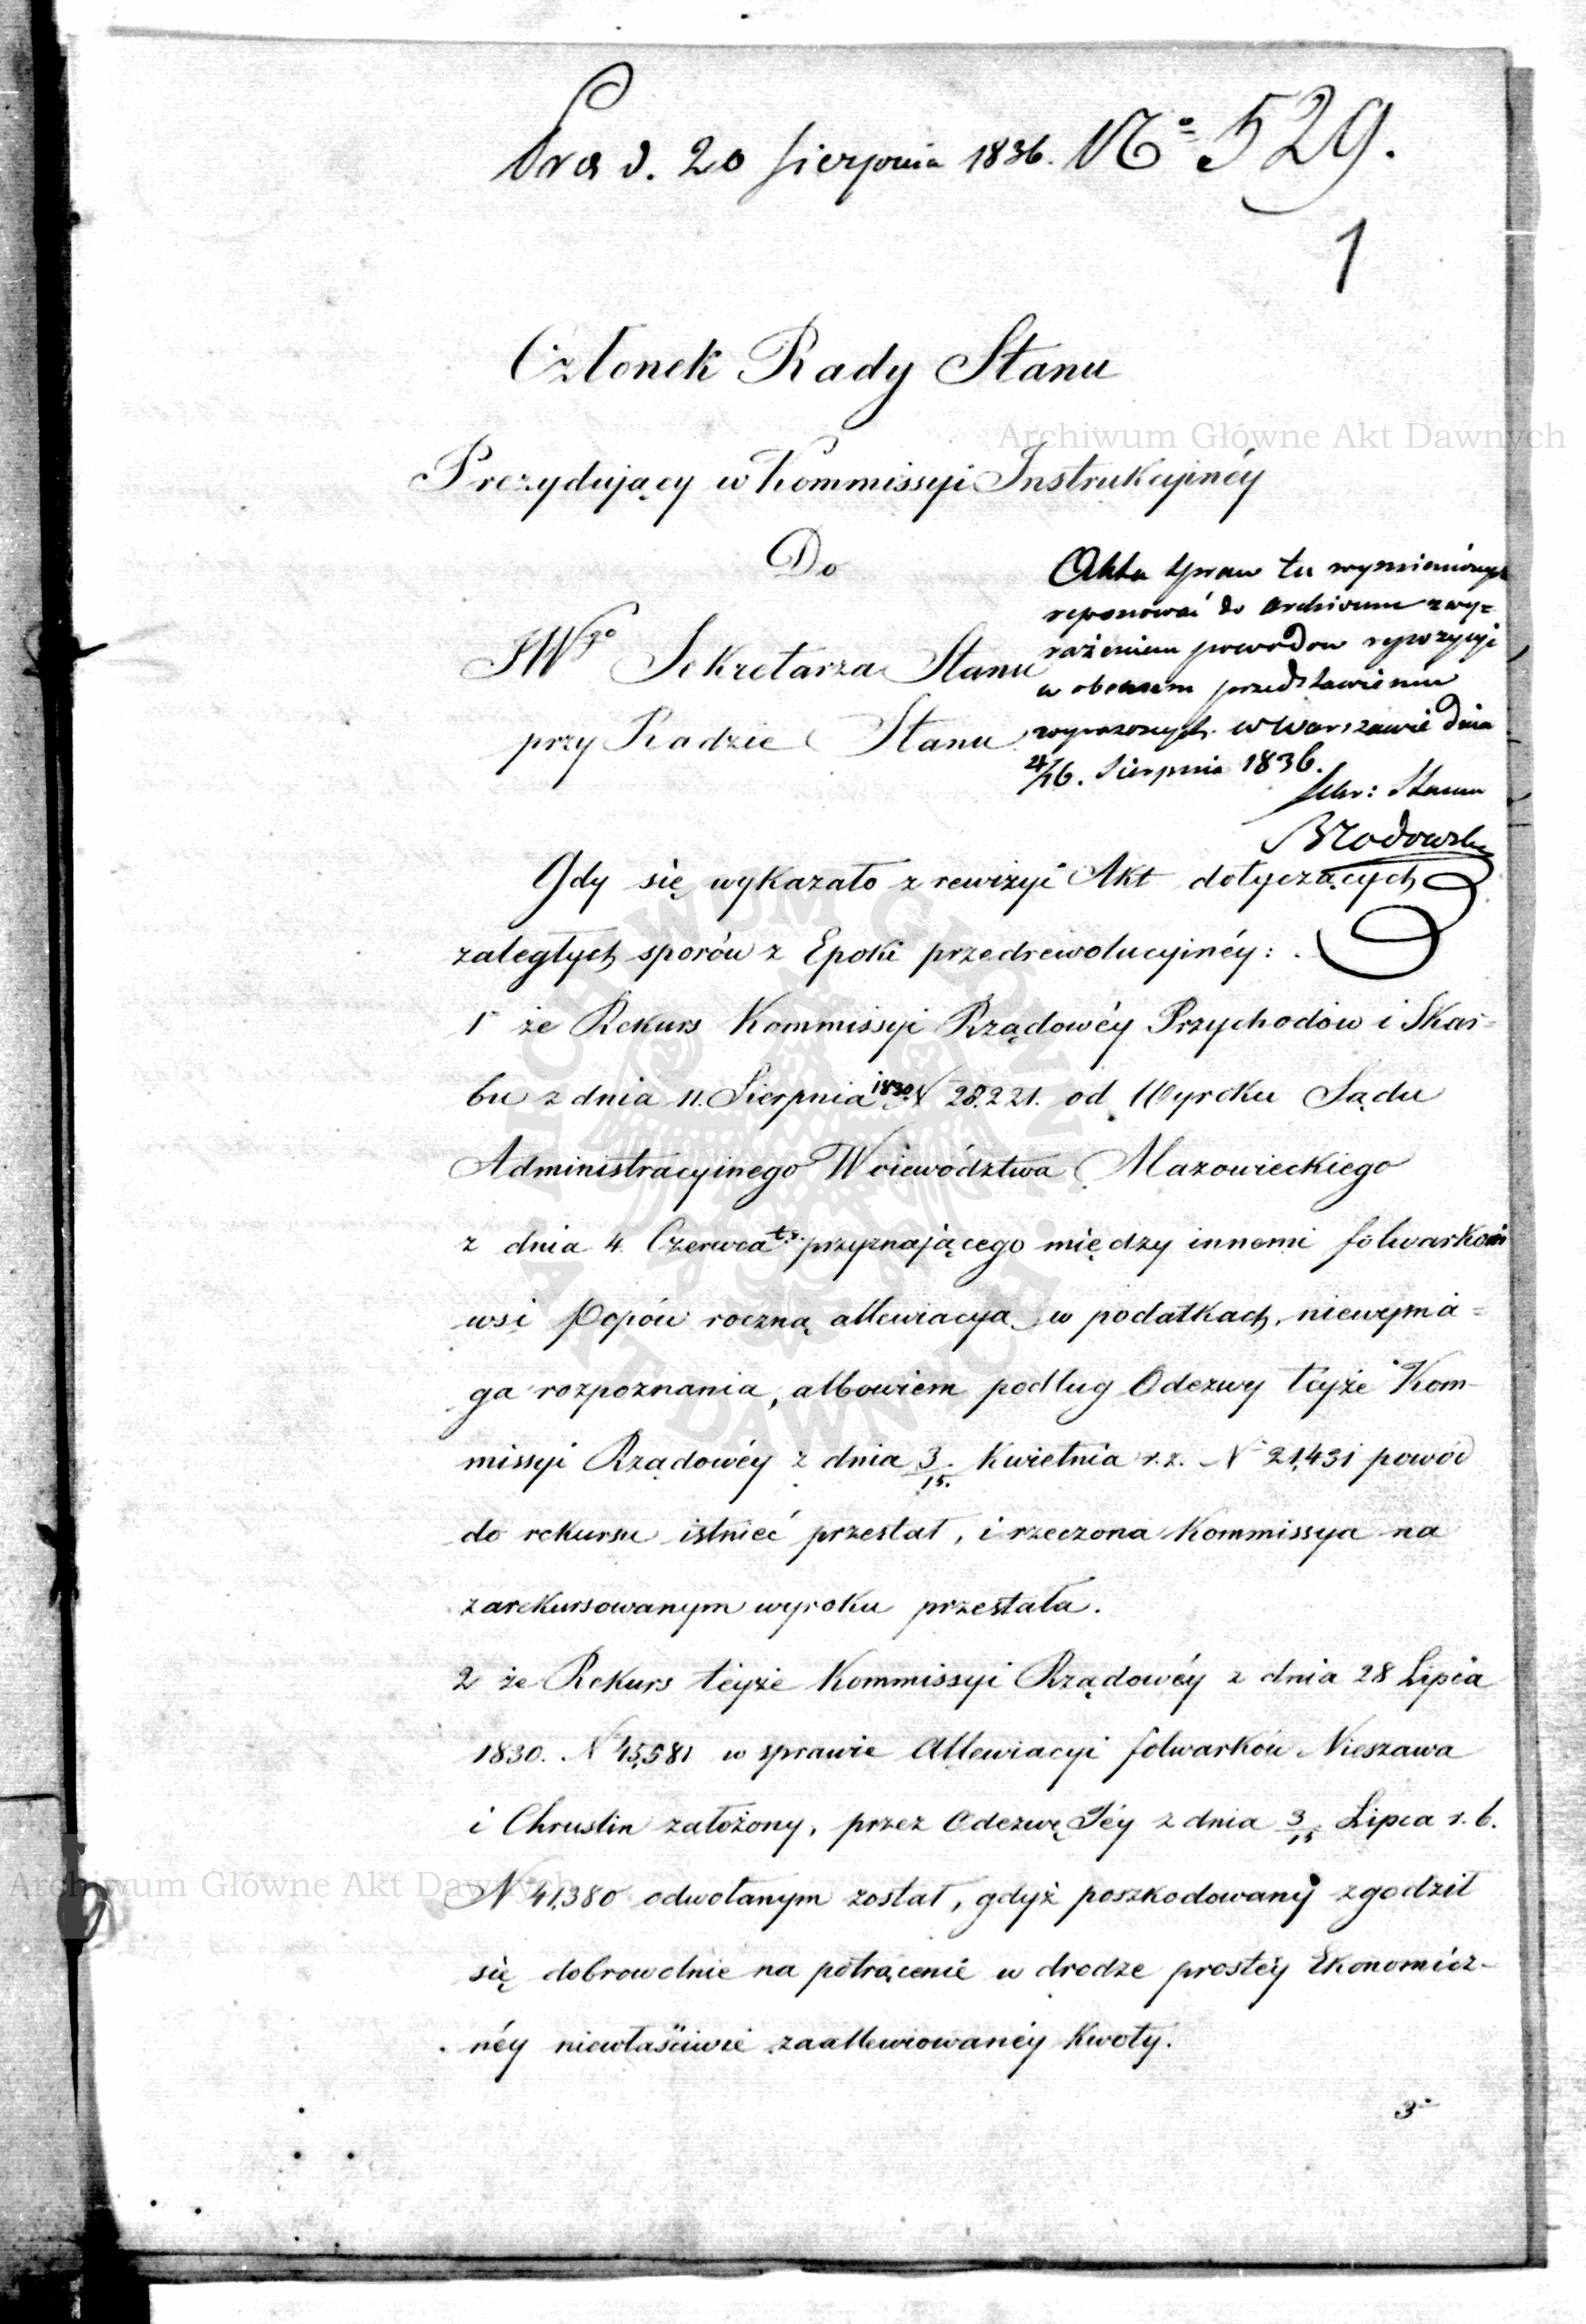 Pra d. 20 Sierpnia 1836. No 529.
1
Członek Rady Stanu
Prezydujący w Kommissyi Instrukcyinéy
Do
JWgo Sekretarza Stanu
przy Radzie Stanu
Akta spraw tu wymienionych
reponować do Archiwum z wy=
rażeniem powodów repozycyi
w obecnem przedstawieniu
wyrażonych. w Warszawie dnia
/26. Sierpnia 1836.
Sekr: Stanu
Brodowski
Gdy się wykazało z rewizyi Akt dotyczących
zaległych sporów z Epoki przedrewolucyinéy:
1° że Rekurs Kommissyi Rządowéy Przychodów i Skar=
bu z dnia 11. Sierpnia 1830 N 28.221. od Wyroku Sądu
Administracyinego Woiewództwa Mazowieckiego
z dnia 4. Czerwca t.r. przyznającego między innemi folwarkowi
wsi Popów roczną allewiacyą w podatkach, niewyma=
ga rozpoznania, albowiem podług Odezwy téyże Kom-
missyi Rządowéy z dnia 3/15. Kwietnia r.z. N 21,431 powód
do rekursu istnieć przestał, i rzeczona Kommissya na
zarekursowanym wyroku przestała.
2 że Rekurs téyże Kommissyi Rządowéy z dnia 28 Lipca
1830. N 45,581 w sprawie Allewiacyi folwarków Nieszawa
i Chruslin założony, przez Odezwę Jéy z dnia 3/15 Lipca r. b.
N 41,380 odwołanym został, gdyż poszkodowany zgodził
się dobrowolnie na potrącenie w drodze prostéy Ekonomicz-
néy niewłaściwie zaallewiowanéy Kwoty.
3°
Archiwum Główne Akt Dawnych
Archiwum Główne Akt Dawnych
ARCHIWUM GŁÓWNE AKT DAWNYCH